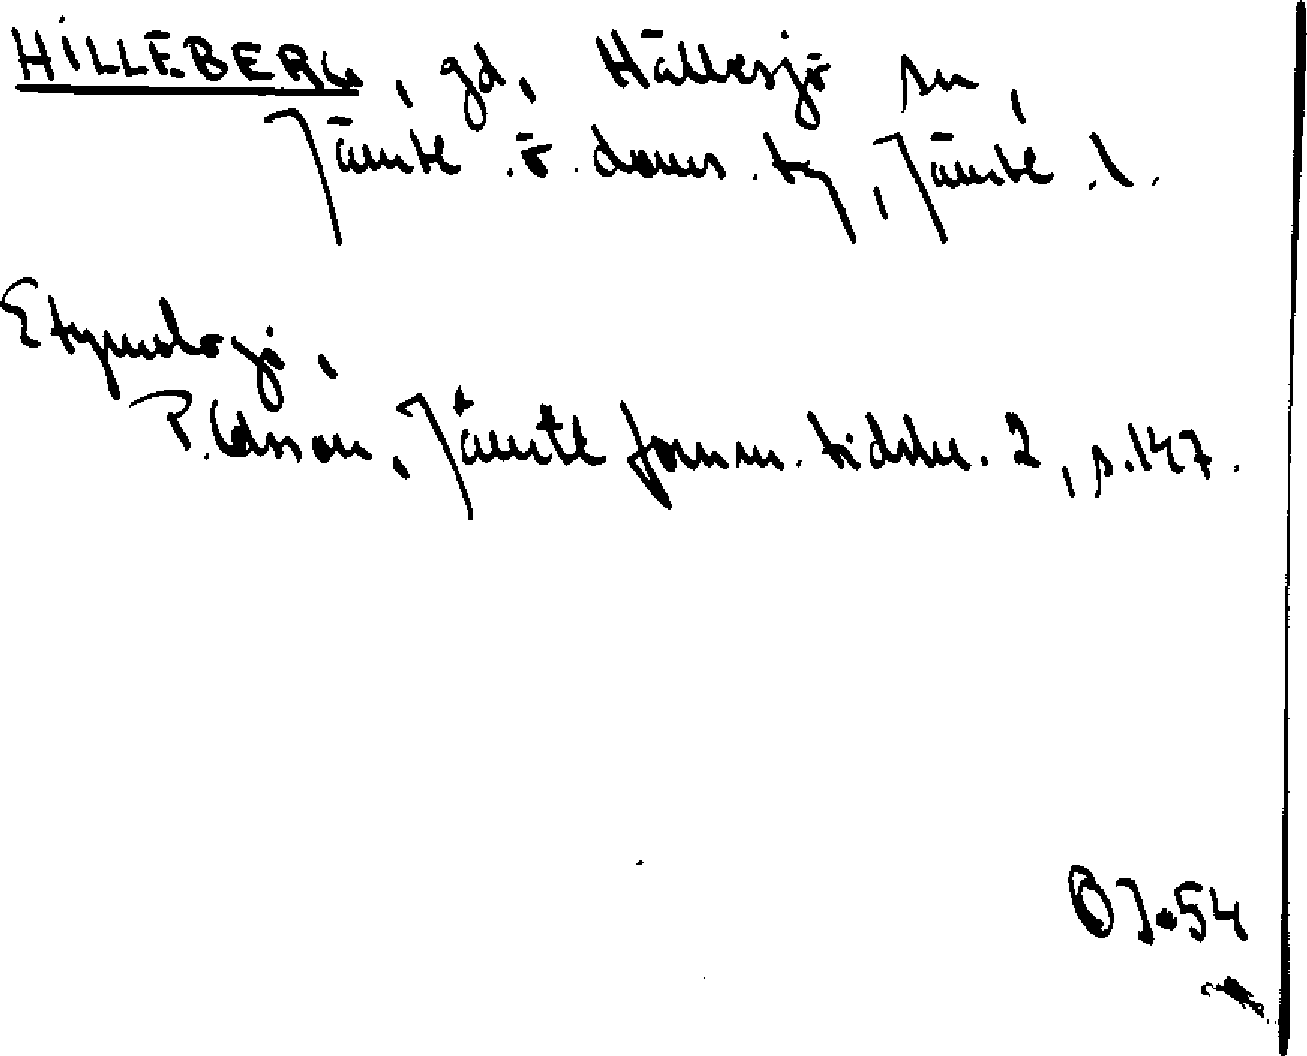 HILLEBERG, gd, Hällesjö sn,
Jämtl. ö. doms. tg, Jämtl. l.
Etymologi,
P. Olsson, Jämtl. fornm. tidskr. 2, s. 147.
ÖJ. 54